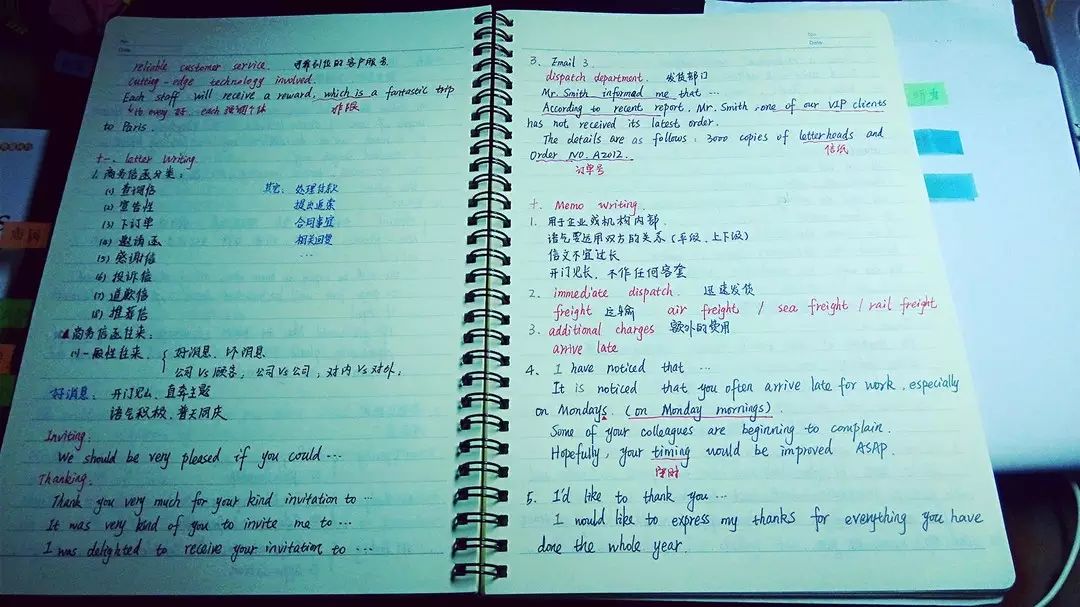 No.
Date
reliable customer service. 可靠到位的客户服务
cutting-edge technology involved.
Each staff will receive a reward, which is a fantastic trip
each 强调个体 排版
to Paris.
十一、letter writing.
1. 商务信函分类：
(1) 查询信 其它：处理付款
(2) 宣告性 提出返索
(3) 下订单 合同事宜
(4) 邀请函 相关回复
(5) 感谢信 …
(6) 投诉信
(7) 道歉信
(8) 推荐信
▲商务信函往来：
(1) 一般性往来. { 好消息、坏消息
公司 vs 顾客, 公司 vs 公司, 对内 vs 对外.
好消息: 开门见山、直奔主题
语气积极、普天同庆
Inviting.
We should be very pleased if you could …
Thanking.
Thank you very much for your kind invitation to …
It was very kind of you to invite me to …
I was delighted to receive your invitation to …
No.
Date
3. Email 3.
dispatch department. 发货部门
Mr. Smith informed me that …
According to recent report, Mr. Smith, one of our VIP clients
has not received its latest order.
The details are as follows: 3000 copies of letterheads and
信纸
Order NO. A2012.
订单号
十. Memo writing.
1. 用于企业或机构内部.
语气要运用双方的关系 (平级、上下级)
信文不宜过长
开门见长, 不作任何客套
2. immediate dispatch. 迅速发货
freight 运输 air freight / sea freight / rail freight
3. additional charges 额外的费用
arrive late
4. I have noticed that …
It is noticed that you often arrive late for work, especially
on Mondays. (on Monday mornings).
Some of your colleagues are beginning to complain.
Hopefully, your timing would be improved ASAP.
守时
5. I'd like to thank you …
I would like to express my thanks for everything you have
done the whole year.